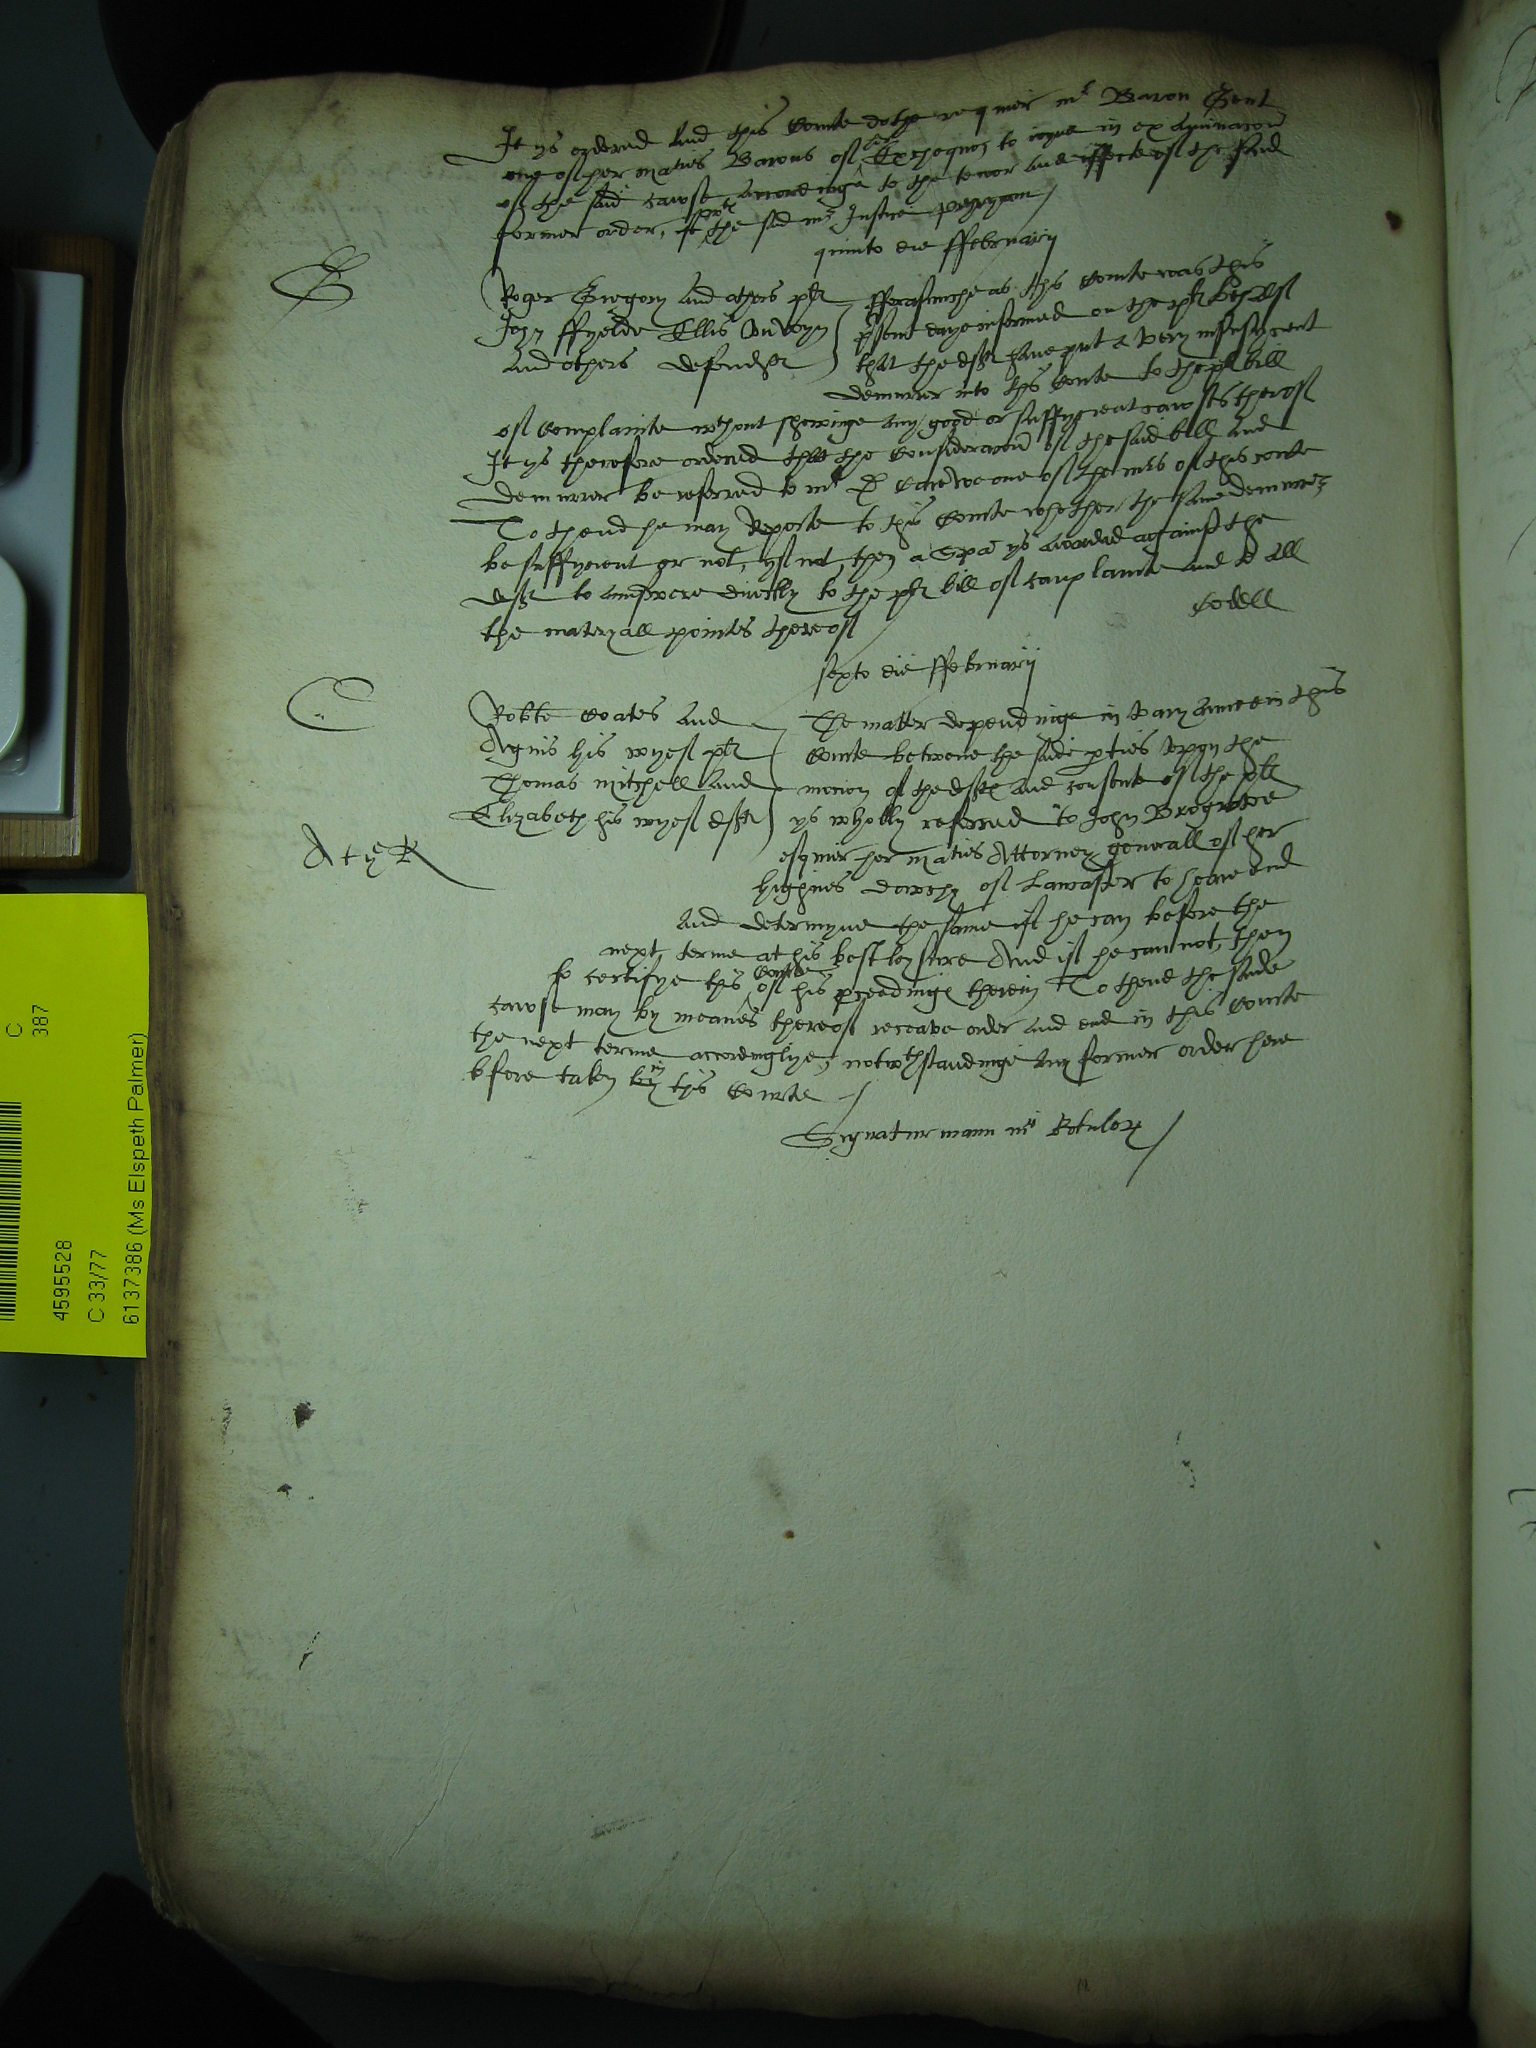 It ys ordered and this Courte dothe requier mr Baron Gent
one of her maties Barons of the Exchequer to ioyne in exa͠inacõn
of the said cawse accordinge to the tenor and effecte of the said
former order, the said mr Justice Peryxxon /
quinto die ffebruarij
G
Roger Gregory and others plt
John ffyelde Ellis
and others defendtes
fforasmuche as this Courte was this
p̃sent daye informed on the pltes behalf
that the deftes have put a very insufficent
demurrer into this Courte to the pltes bill
of Complainte wthout shewinge any good or suffycient cawses therof
It ys therefore ordered that the Consideracõn of the said bill and
demurrer be referred to mr D Carewe one of the mrs of this Corte
To thend he may Reporte to this Courte whether the same demurrer
be suffycient or not, yf not, then a Spa ys awarded against the
deftes to aunswere directly to the pltes bill of complainte and to all
the materyall pointes thereof
Cordell
sexto die ffebruarij
C
Robte Coates and
Agnis his wyef pltes
Thomas Mitchell and
Elizabeth his wyef deftes
The matter dependinge in varyaunce in this
Courte betwene the saide p̱ties vpon the
mocion of the deftes and consente of the pltes
ys wholly referred to John Brograve
esquier her maties Attorney generall of her
highnes dowchy of Lancaster to heare end
and determyne the same if he can before the
next terme at his best leysure And if he can not, then
to certifye this Courte of his p̱ceadinges therein To thend the saide
cawse may by meanes thereof receave order and end in this Courte
the next terme accordinglye, notwthstandinge any former order here
before taken in this Courte /
Signatur manu mri Rotulor /
4595528
C 33/77
6137386 (Ms Elspeth Palmer)
C
387